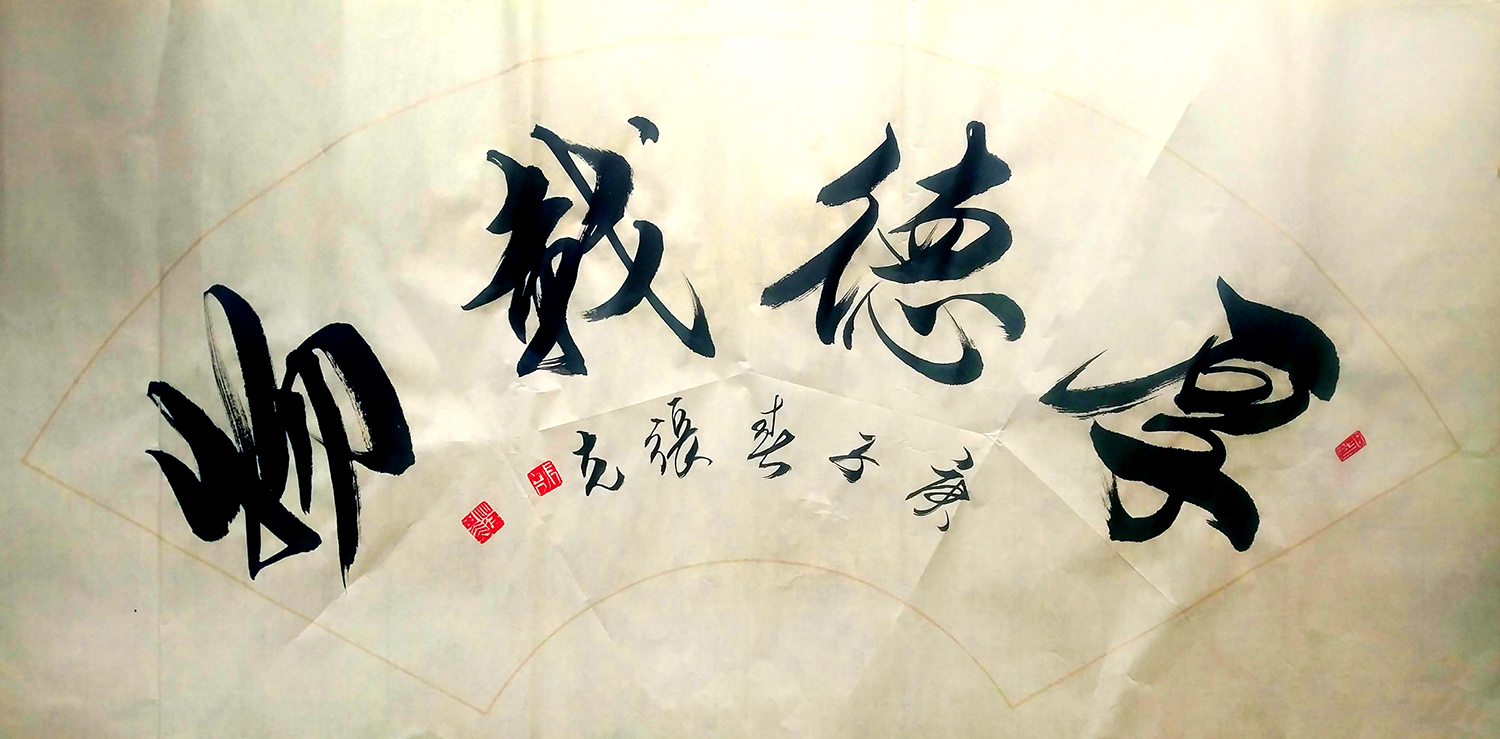 厚德载物
庚子春張克